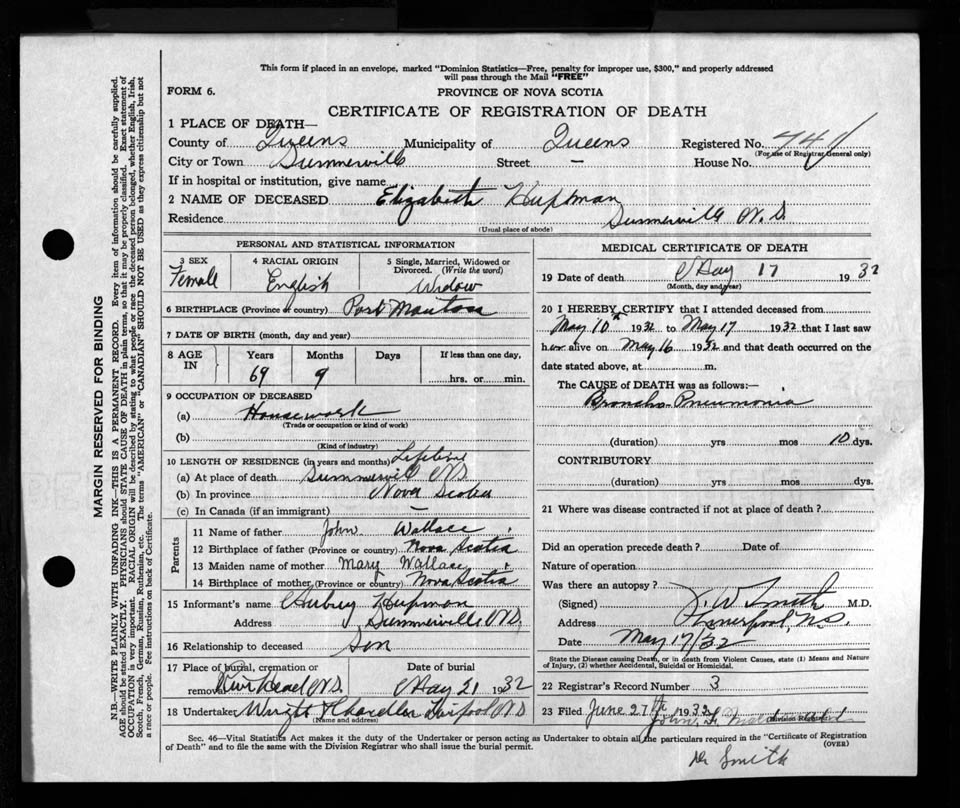 This form if placed in an envelope, marked "Dominion Statistics—Free, penalty for improper use, $300," and properly addressed
will pass through the Mail "FREE"
FORM 6.
PROVINCE OF NOVA SCOTIA
CERTIFICATE OF REGISTRATION OF DEATH
1 PLACE OF DEATH—
County of Queens Municipality of Queens Registered No. 7741
(For use of Registrar General only)
City or Town Summerville Street — House No.
If in hospital or institution, give name
2 NAME OF DECEASED Elizabeth Hupman
Residence Summerville N.S.
(Usual place of abode)
PERSONAL AND STATISTICAL INFORMATION
3 SEX Female
4 RACIAL ORIGIN English
5 Single, Married, Widowed or Divorced. (Write the word) Widow
6 BIRTHPLACE (Province or country) Port Mouton
7 DATE OF BIRTH (month, day and year)
8 AGE IN Years 69 Months 9 Days If less than one day, hrs. or min.
9 OCCUPATION OF DECEASED
(a) Housework
(Trade or occupation or kind of work)
(b)
(Kind of industry)
10 LENGTH OF RESIDENCE (in years and months) Lifetime
(a) At place of death Summervill N.S.
(b) In province Nova Scotia
(c) In Canada (if an immigrant) —
Parents
11 Name of father John Wallace
12 Birthplace of father (Province or country) Nova Scotia
13 Maiden name of mother Mary Wallace
14 Birthplace of mother (Province or country) Nova Scotia
15 Informant's name Aubrey Hupman
Address Summerville N.S.
16 Relationship to deceased Son
17 Place of burial, cremation or removal N.S. Date of burial May 21 1932
18 Undertaker Wright Chandler L'pool N.S.
(Name and address)
MEDICAL CERTIFICATE OF DEATH
19 Date of death May 17 1932
(Month, day and year)
20 I HEREBY CERTIFY that I attended deceased from
May 10th 1932 to May 17 1932 that I last saw
her alive on May 16 1932 and that death occurred on the
date stated above, at m.
The CAUSE of DEATH was as follows:—
Broncho-Pneumonia
(duration) yrs mos 10 dys.
CONTRIBUTORY
(duration) yrs mos dys.
21 Where was disease contracted if not at place of death?
Did an operation precede death? Date of
Nature of operation
Was there an autopsy?
(Signed) J. W. Smith M.D.
Address Liverpool, N.S.
Date May 17/32
State the Disease causing Death, or in death from Violent Causes, state (1) Means and Nature
of Injury, (2) whether Accidental, Suicidal or Homicidal.
22 Registrar's Record Number 3
23 Filed June 27th 1932 John
Division Registrar
Sec. 46—Vital Statistics Act makes it the duty of the Undertaker or person acting as Undertaker to obtain all the particulars required in the "Certificate of Registration
of Death" and to file the same with the Division Registrar who shall issue the burial permit.
(OVER)
Dr Smith
MARGIN RESERVED FOR BINDING
N.B.—WRITE PLAINLY WITH UNFADING INK—THIS IS A PERMANENT RECORD. Every item of information should be carefully supplied.
AGE should be stated EXACTLY. PHYSICIANS should STATE CAUSE OF DEATH in plain terms, so that it may be properly classified. Exact statement of
OCCUPATION is very important. RACIAL ORIGIN will be described by stating to what people or race the deceased person belonged, whether English, Irish,
Scotch, French, German, Russian, Ruthenian, etc. The terms "AMERICAN" or "CANADIAN" SHOULD NOT BE USED as they express citizenship but not
a race or people. See instructions on back of Certificate.